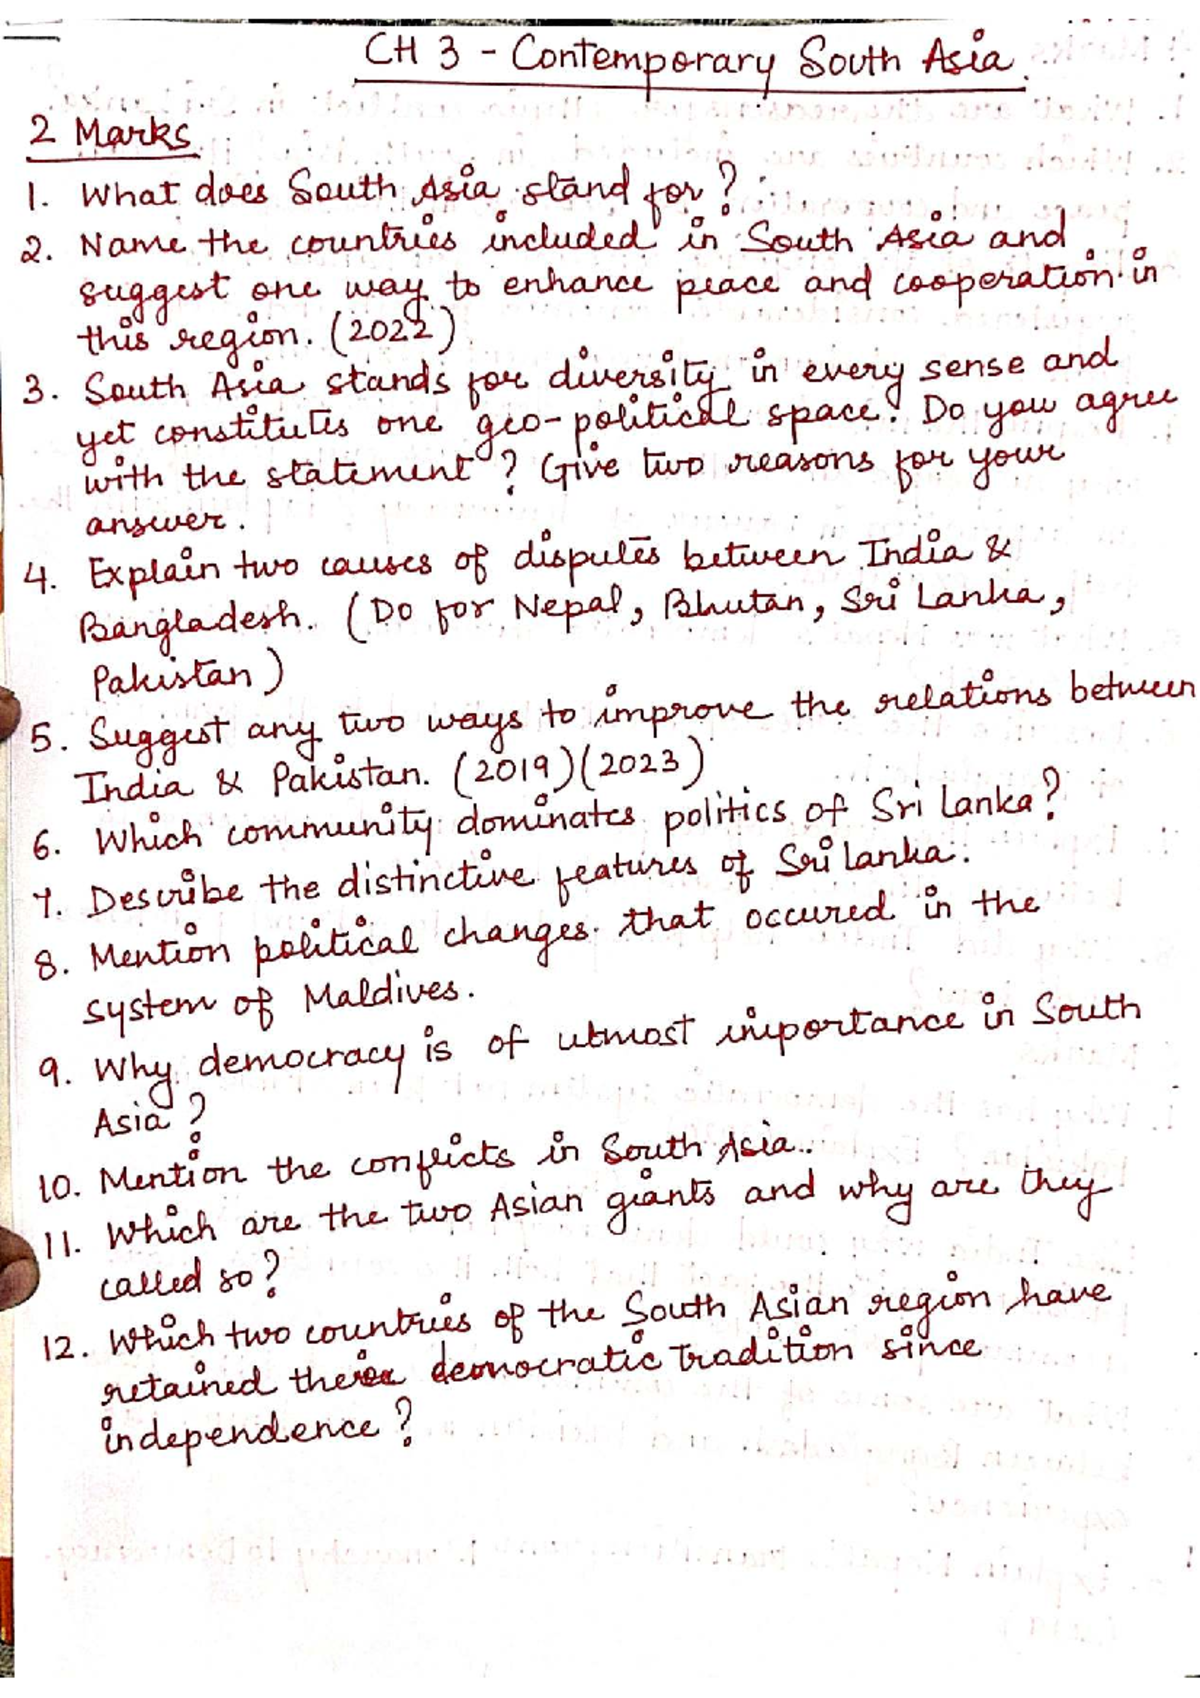 CH 3 - Contemporary South Asia.
2 Marks.
1. What does South Asia stand for?
2. Name the countries included in South Asia and
suggest one way to enhance peace and cooperation in
this region. (2022)
3. South Asia stands for diversity in every sense and
yet constitutes one geo-political space. Do you agree
with the statement? Give two reasons for your
answer.
4. Explain two causes of disputes between India &
Bangladesh. (Do for Nepal, Bhutan, Sri Lanka,
Pakistan)
5. Suggest any two ways to improve the relations between
India & Pakistan. (2019)(2023)
6. Which community dominates politics of Sri Lanka?
7. Describe the distinctive features of Sri lanka.
8. Mention political changes that occured in the
system of Maldives.
9. Why democracy is of utmost importance in South
Asia?
10. Mention the conflicts in South Asia..
11. Which are the two Asian giants and why are they
called so?
12. Which two countries of the South Asian region have
retained their democratic tradition since
independence?